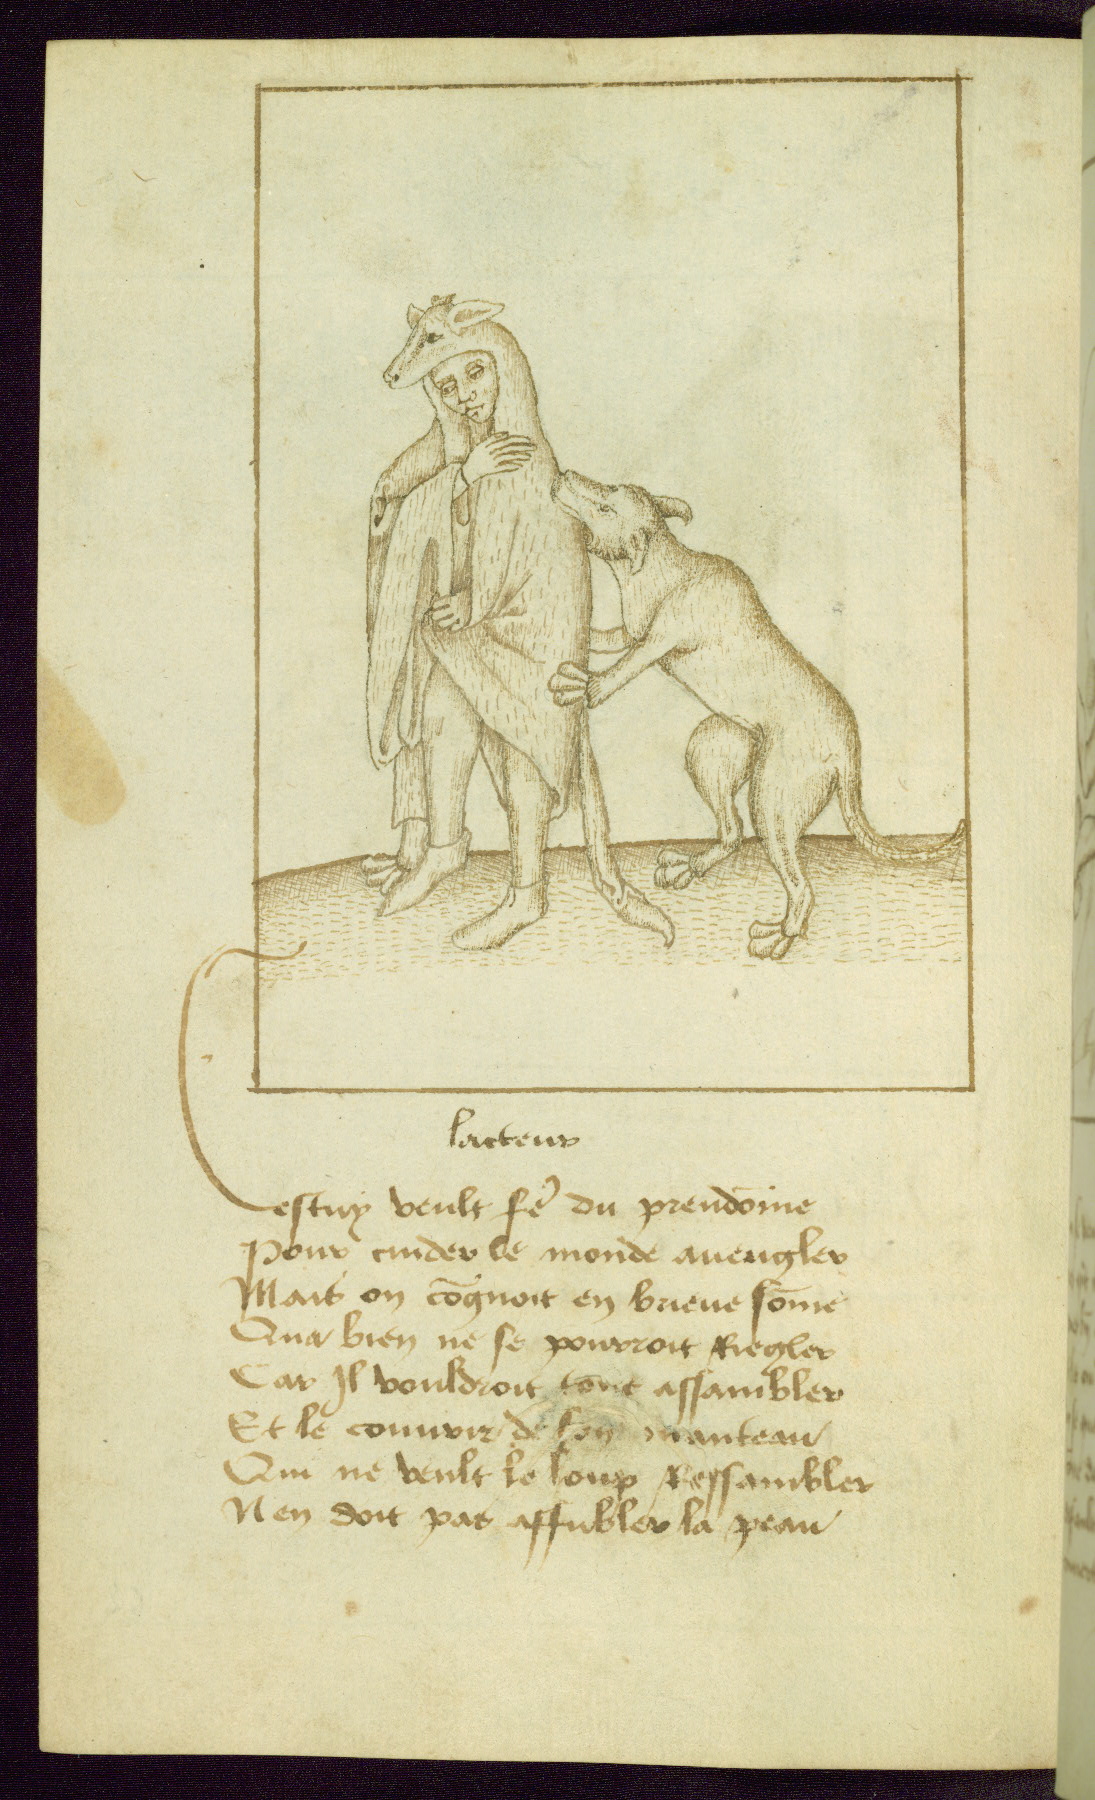 lacteur
Cestuy veult fẽ du preudõme
Pour cuider le monde aueugler
Mais on cõgnoit en brieue sõme
Qua bien ne se pourroit Riegler
Car Il vouldroit tout assambler
Et le couurir de son manteau
Qui ne veult le loup Ressambler
Nen doit pas affubler la peau